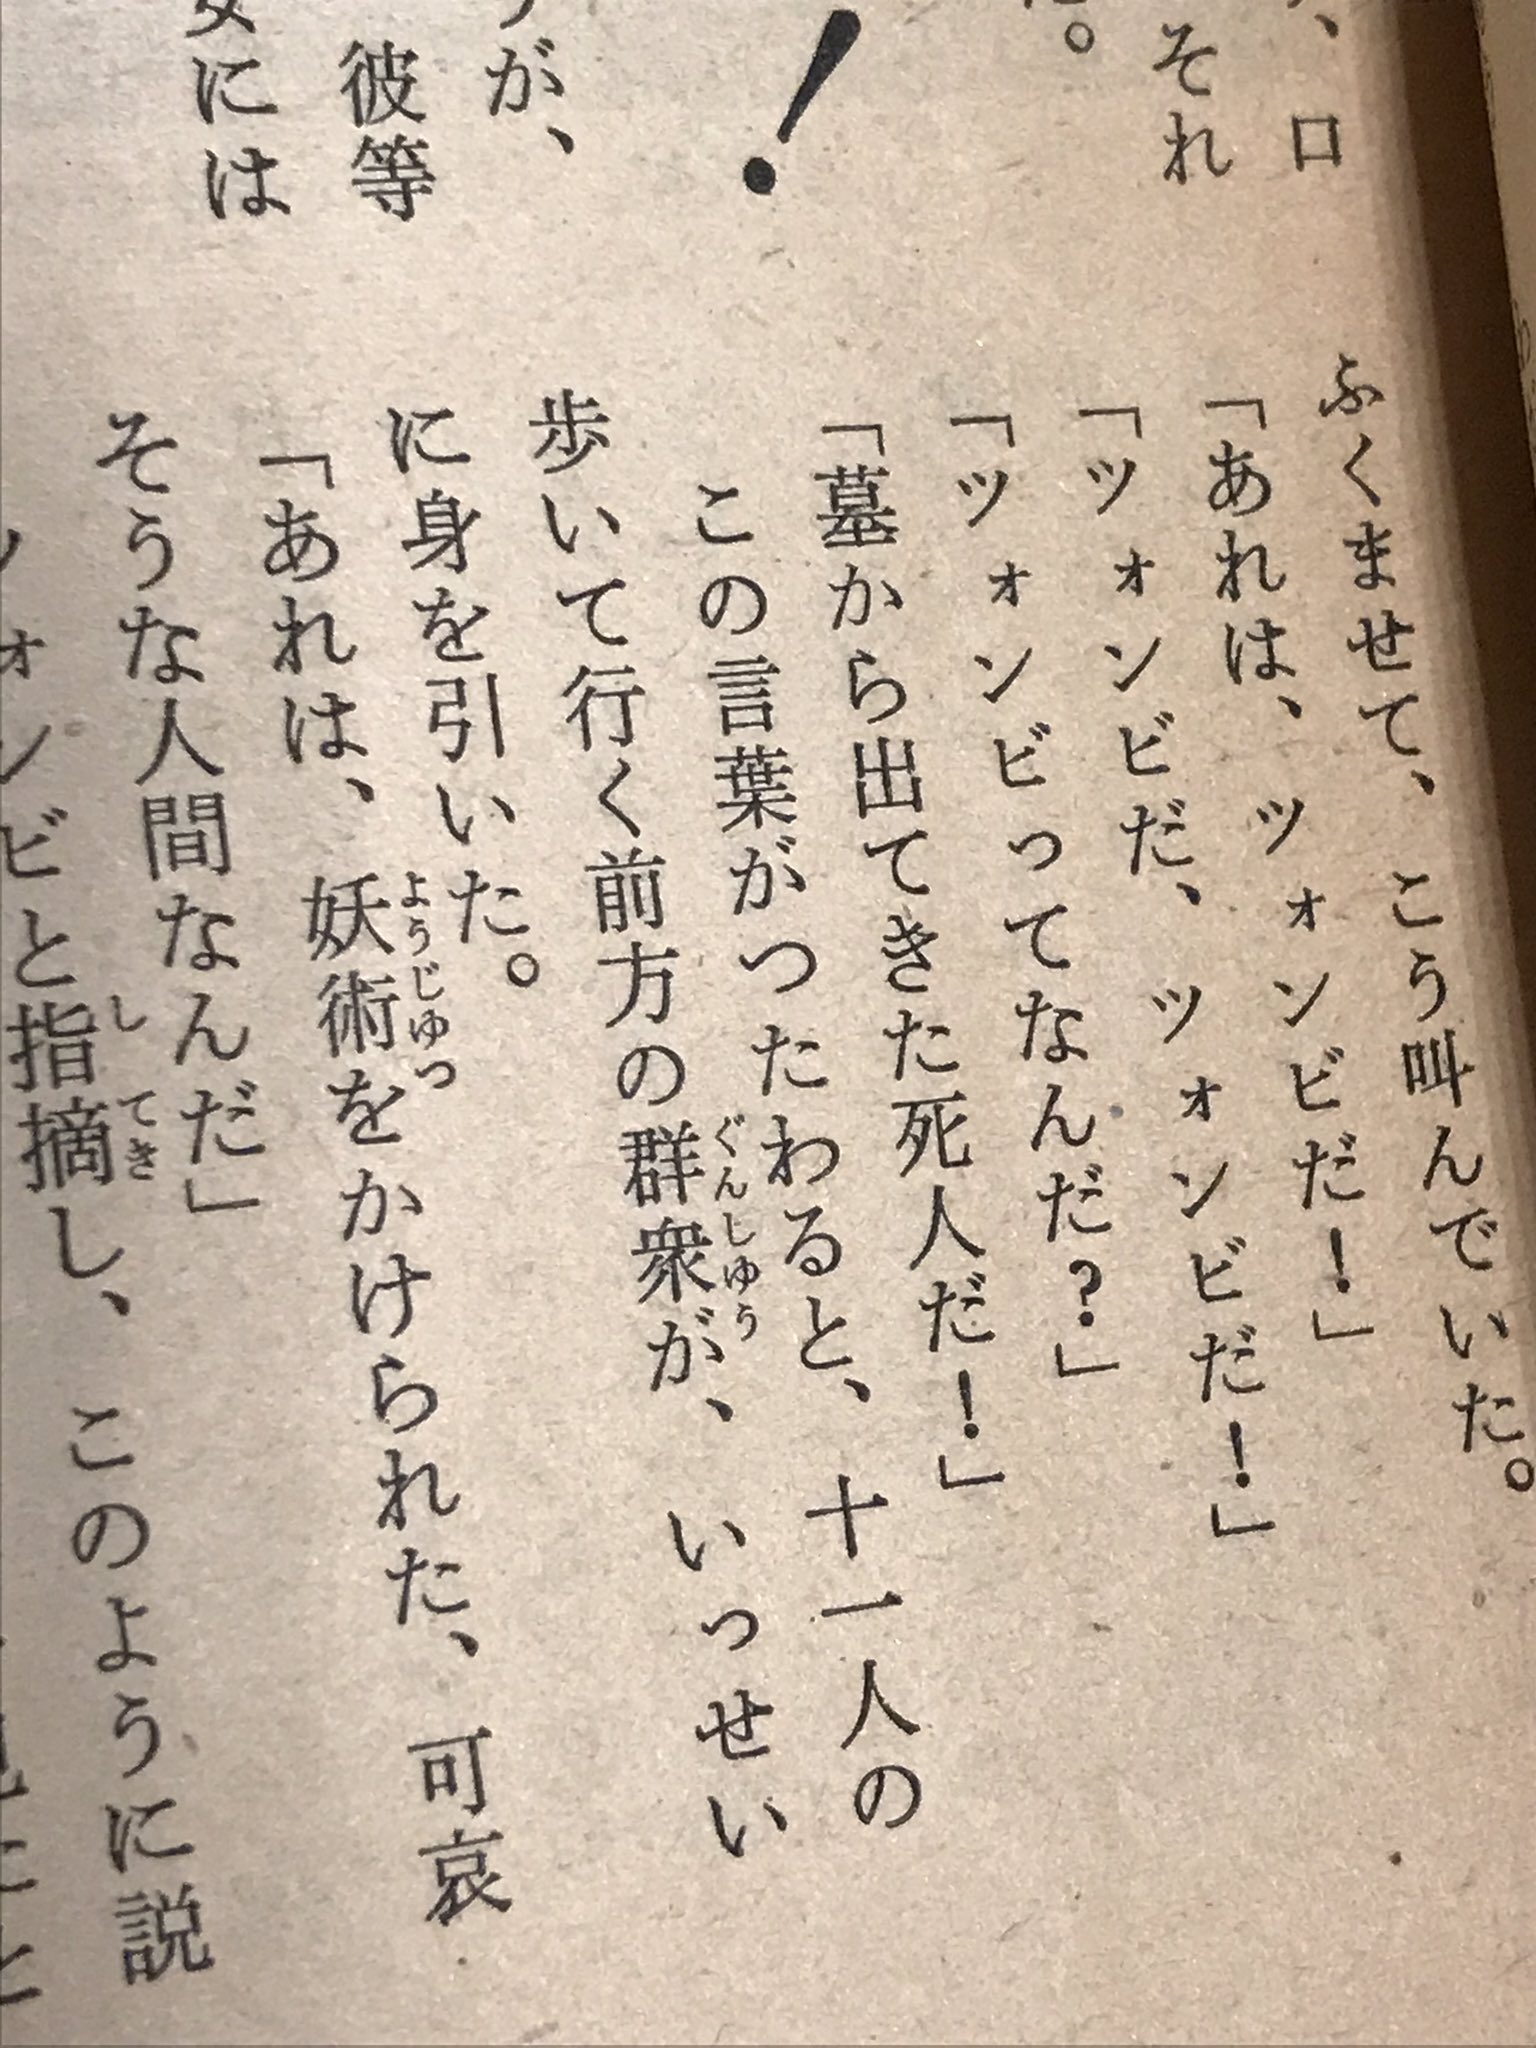 、ロ
それ
。
！
が、
彼等
女には
ふくませて、こう叫んでいた。
「あれは、ツォンビだ！」
「ツォンビだ、ツォンビだ！」
「ツォンビってなんだ？」
「墓から出てきた死人だ！」
この言葉がつたわると、十一人の
歩いて行く前方の群衆が、いっせい
ぐんしゅう
に身を引いた。
「あれは、妖術をかけられた、可哀
ようじゅつ
そうな人間なんだ」
ツォンビと指摘し、このように説
してき